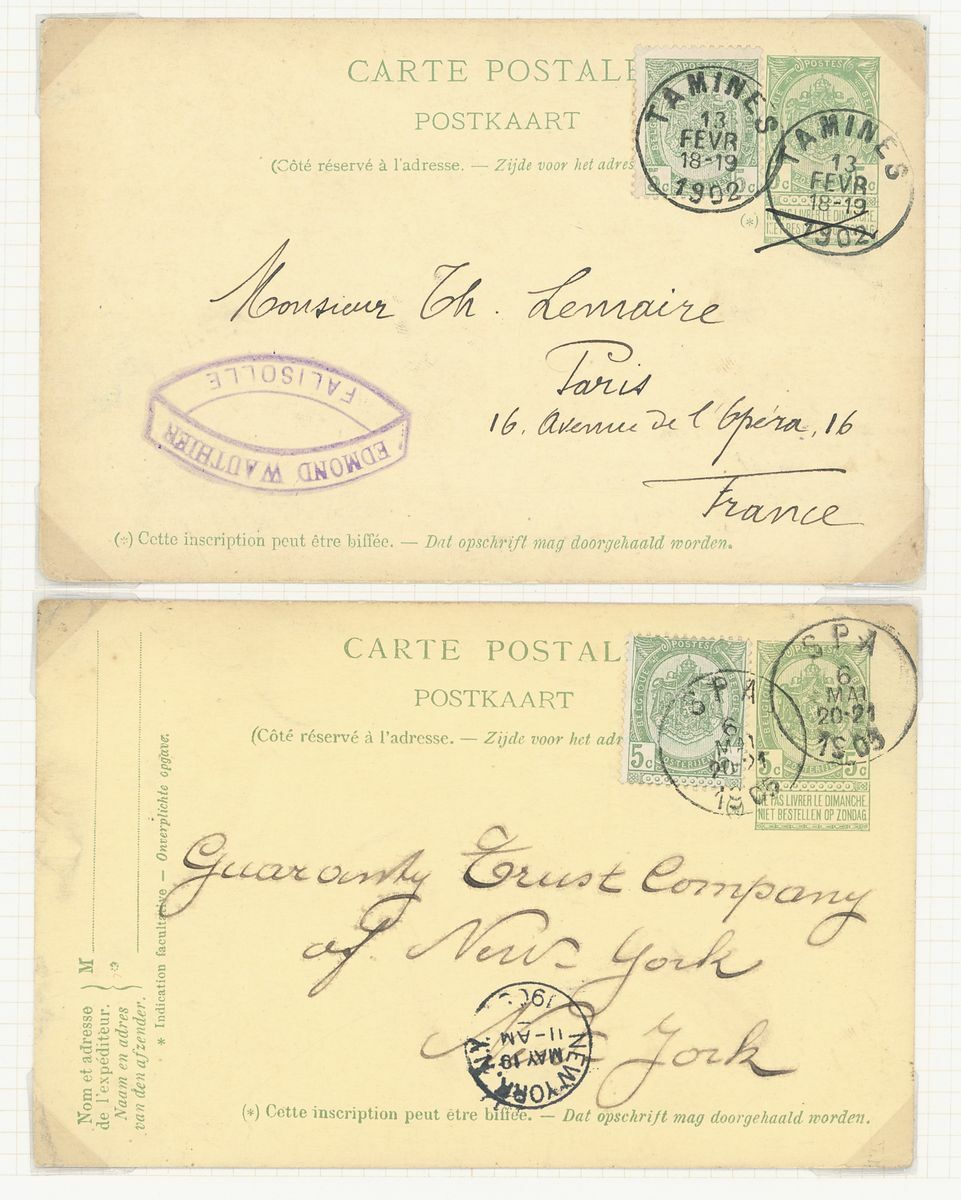 CARTE POSTALE
POSTKAART
(Côté réservé à l'adresse. — Zijde voor het adres
POSTES
TAMINES
13
FEVR
18-19
1902
POSTES
TAMINES
13
FEVR
18-19
1902
(*)
Monsieur Th. Lemaire
Paris
16. Avenue de l'Opéra, 16
France
FALISOLLE
EDMOND WAUTHIER
(*) Cette inscription peut être biffée. — Dat opschrift mag doorgehaald worden.
CARTE POSTAL
POSTKAART
(Côté réservé à l'adresse. — Zijde voor het adr
POSTES
5c
SPA
6
MAI
1905
POSTES
SPA
6
MAI
20-21
1905
5c 5c
NE PAS LIVRER LE DIMANCHE.
NIET BESTELLEN OP ZONDAG.
Guaranty Trust Company
of New York
New York
NEW YORK, N.Y.
MAY 19
11-AM
190
Nom et adresse
de l'expéditeur.
Naam en adres
van den afzender.
M
* Indication facultative — Onverplichte opgave.
(*) Cette inscription peut être biffée. — Dat opschrift mag doorgehaald worden.